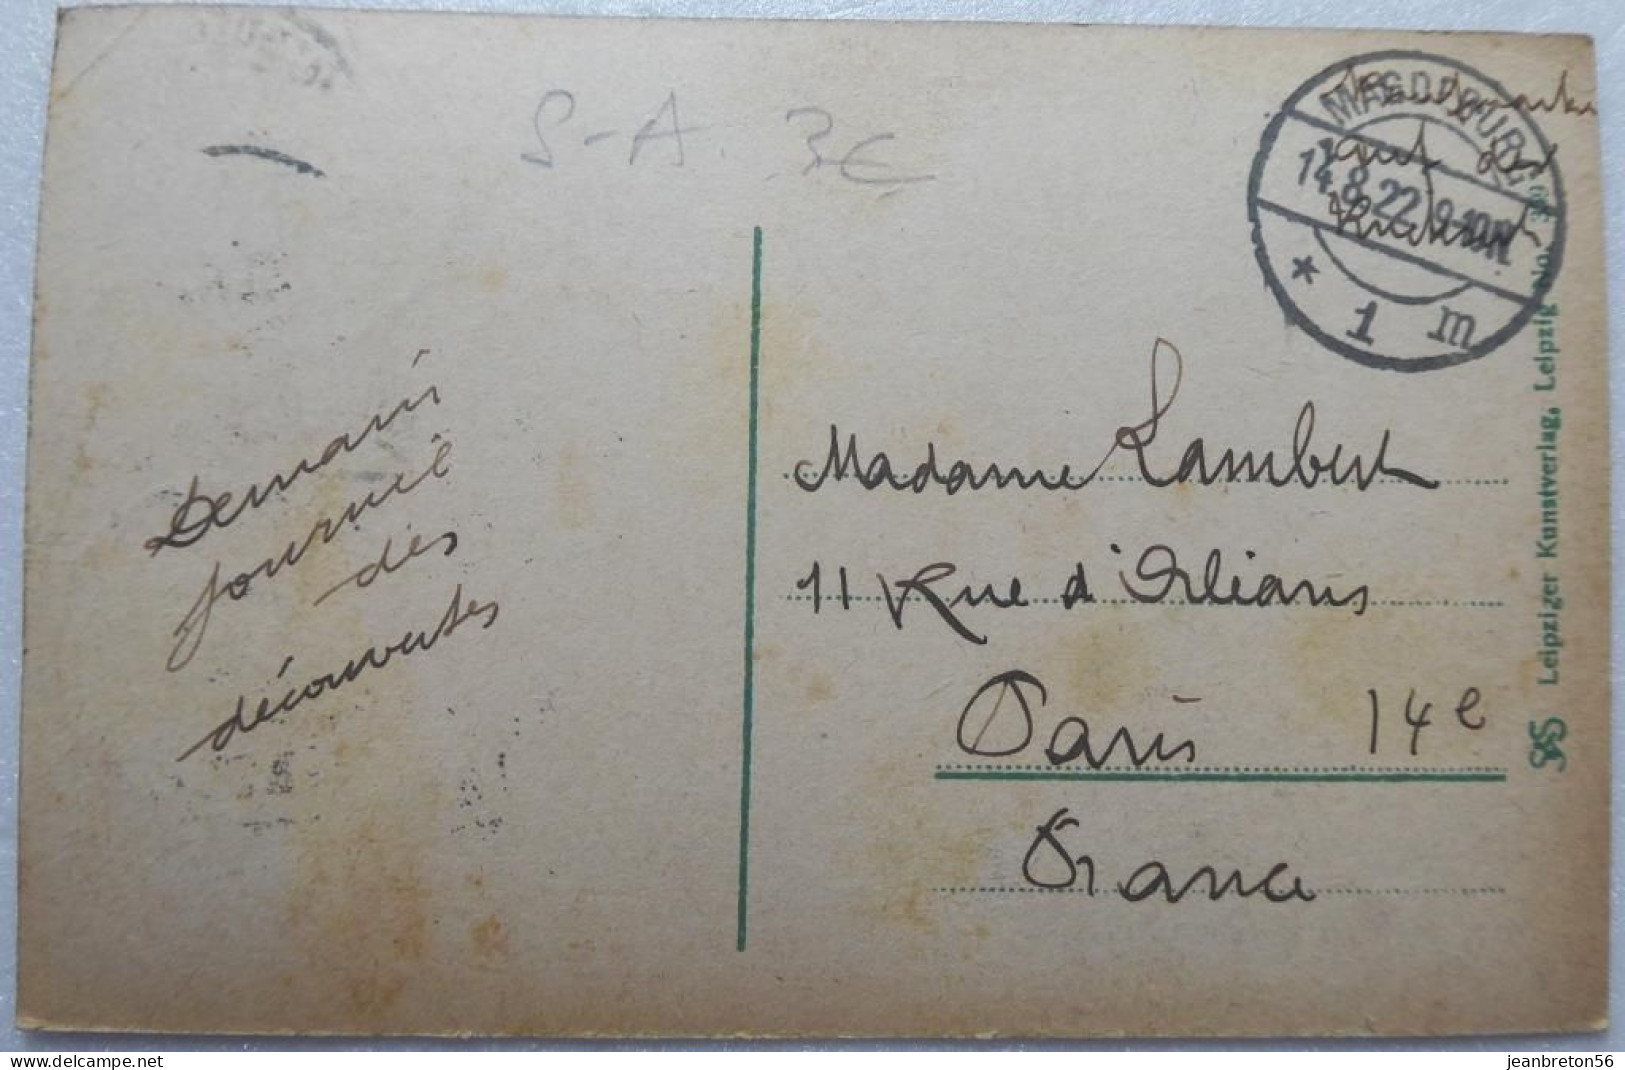 S-A. 3€
MAGDEBURG
14.8.22.9-10N.
* 1 m
Briefmarke
auf der
Rückseite
Demain
journée
des
découvertes
Madame Lambert
11 Rue d'Orléans
Paris 14e
France
Leipziger Kunstverlag, Leipzig No.
delcampe.net
jeanbreton56